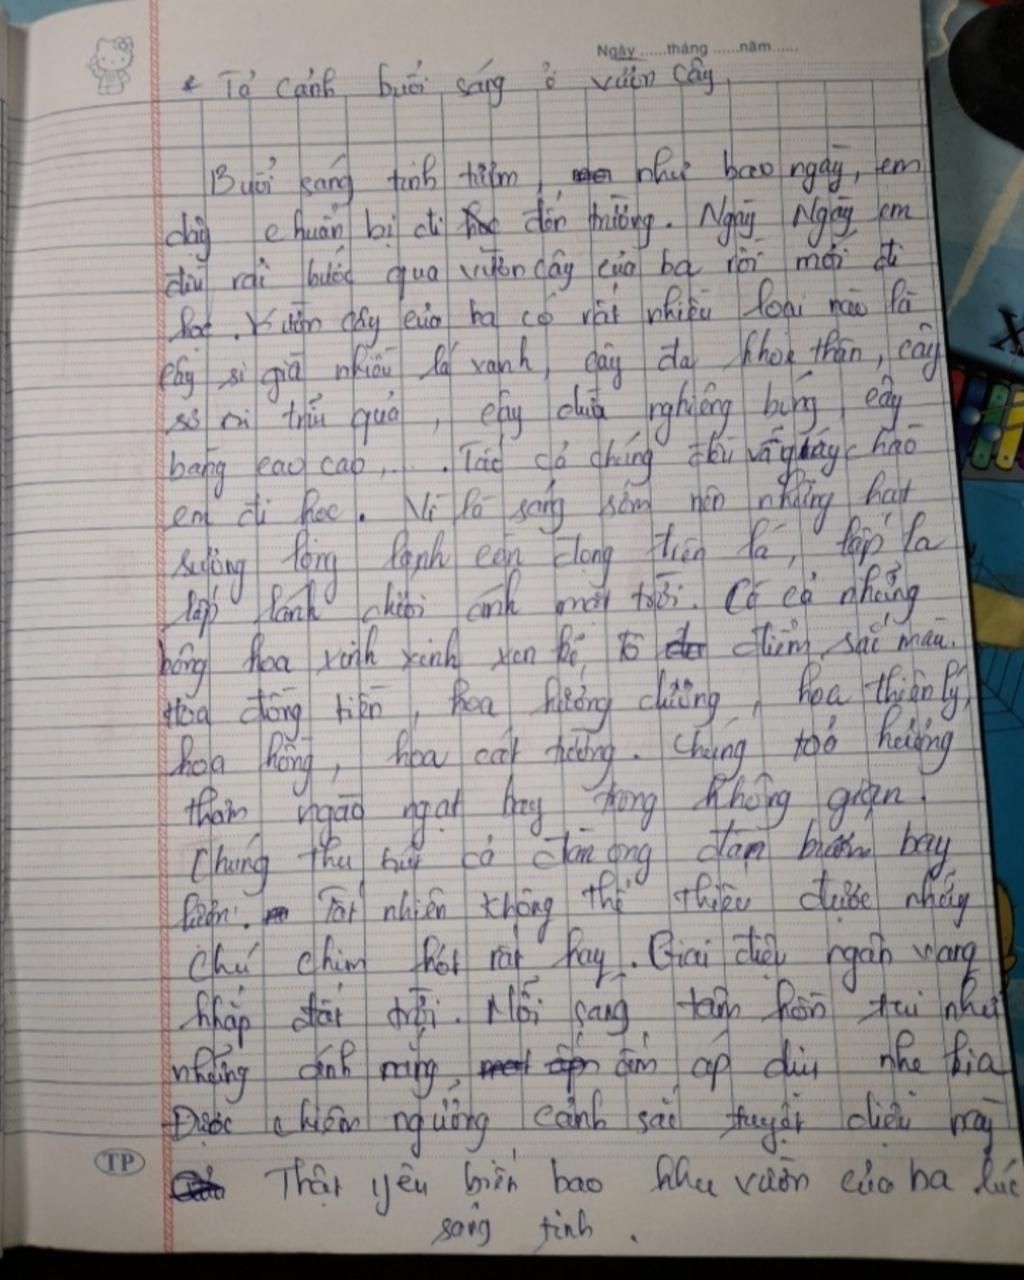 Ngày ......tháng ......năm......
* Tả cảnh buổi sáng ở vườn cây
Buổi sáng tinh tươm, như bao ngày, em
dậy chuẩn bị đi đến trường. Ngày Ngày em
đều rải bước qua vườn cây của ba rồi mới đi
học. Vườn cây của ba có rất nhiều loại nào là
cây si già nhiều lá xanh, cây đa khoẻ thân, cây
sơ ri trĩu quả, cây dừa nghiêng bóng, cây
bàng cao cao,.... Tất cả chúng đều vẫy chào
em đi học. Vì là sáng sớm nên những hạt
sương lóng lánh còn đọng trên lá, lấp la
lấp lánh dưới ánh mặt trời. Có cả những
bông hoa xinh xinh xen kẽ, tô điểm sắc màu.
Hoa đồng tiền, hoa hướng dương, hoa thiên lý,
hoa hồng, hoa cát tường. Chúng toả hương
thơm ngào ngạt bay trong không gian.
Chúng thu hút cả đàn ong đàn bướm bay
lượn. Tất nhiên không thể thiếu được mấy
chú chim hót rất hay. Giai điệu ngân vang
khắp đất trời. Mỗi sáng tâm hồn tui như
những ánh nắng ấm áp dịu nhẹ kia
Được chiêm ngưỡng cảnh sắc tuyệt diệu này
Thật yêu biết bao khu vườn của ba lúc
sáng tinh.
TP